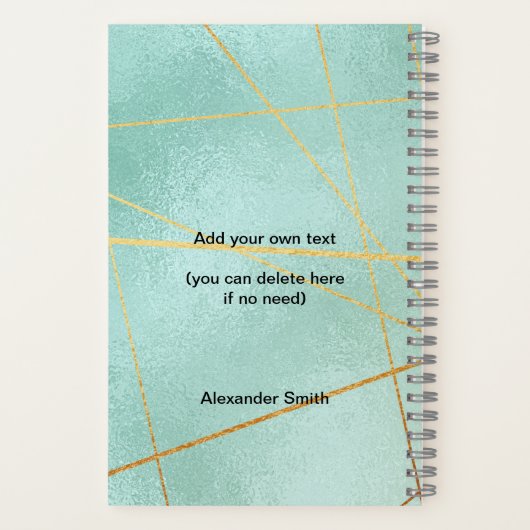 Add your own text
(you can delete here
if no need)
Alexander Smith